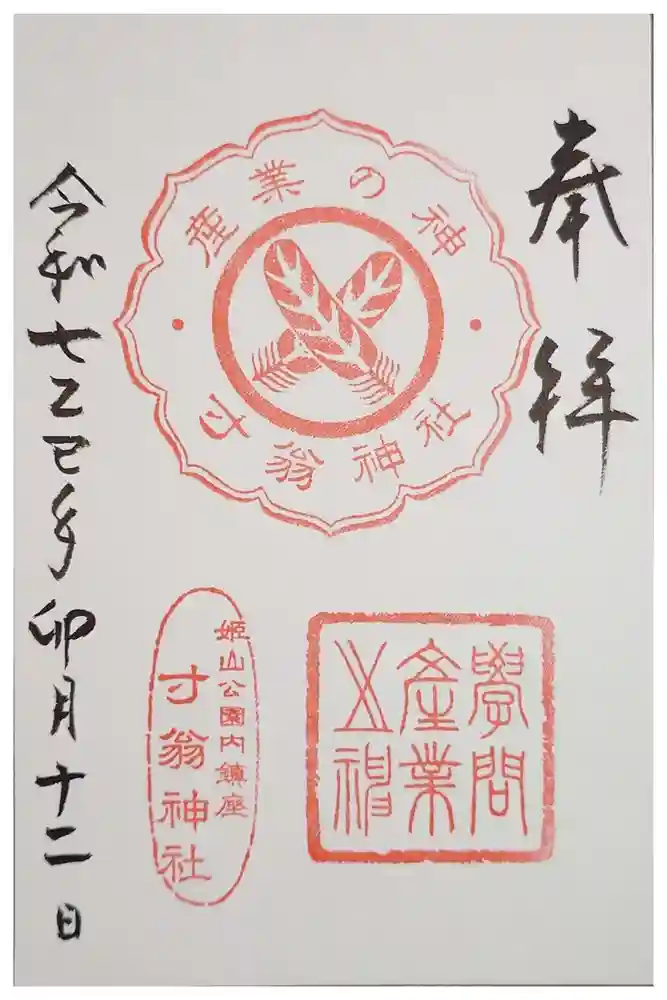 奉拝
産業の神
寸翁神社
學問
産業
之神
姫山公園内鎮座
寸翁神社
令和七乙巳年卯月十二日